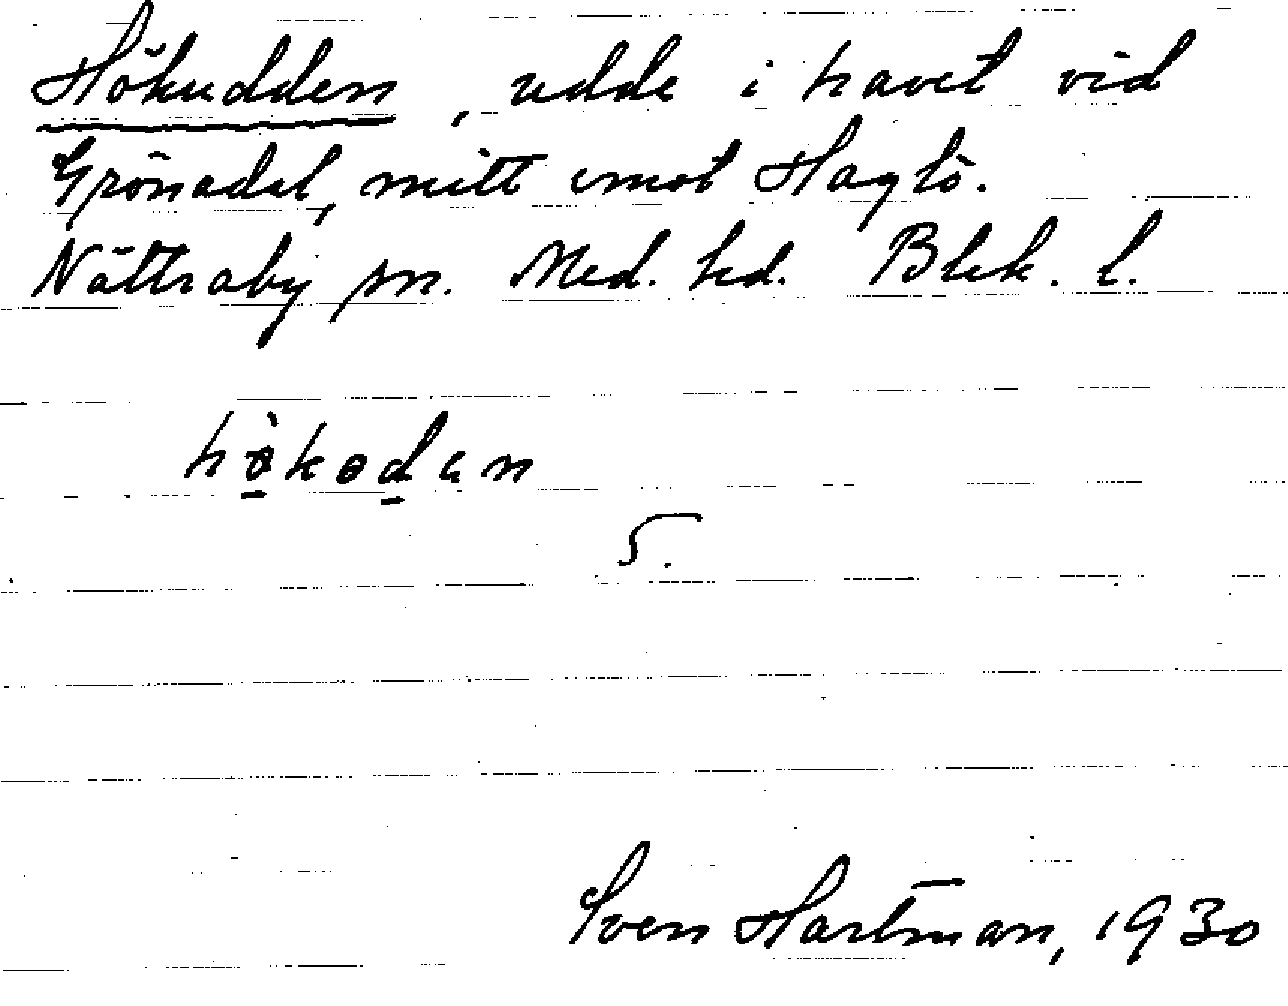 Hökudden, udde i havet vid
Grönadal, mitt emot Haglö.
Nättraby sn. Med. hd. Blek. l.
S.
Sven Hartman, 1930